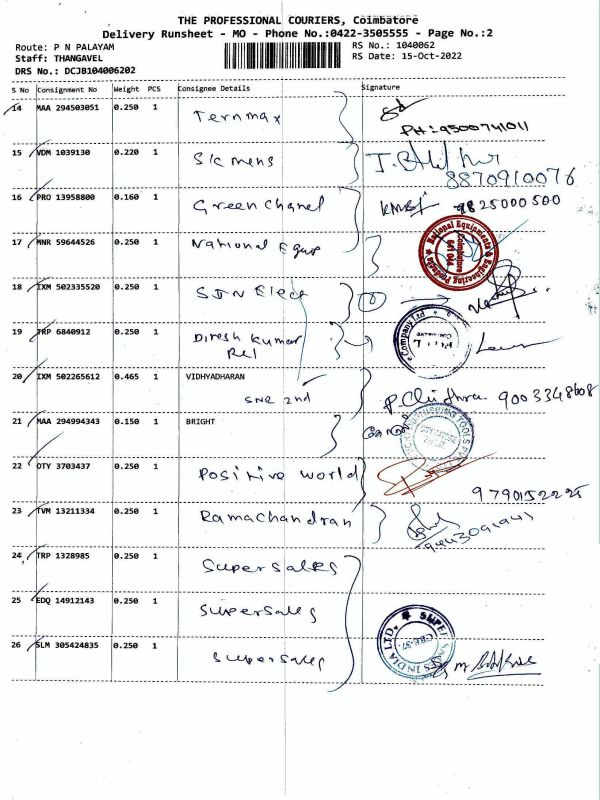 THE PROFESSIONAL COURIERS, Coimbatore
Delivery Runsheet - MO - Phone No.:0422-3505555 - Page No.:2
Route: P N PALAYAM
RS No.: 1040062
Staff: THANGAVEL
RS Date: 15-Oct-2022
DRS No.: DCJB104006202
S No Consignment No Weight PCS Consignee Details Signature
14 MAA 294503051 0.250 1 Ternmax
PH:9500741011
15 VDM 1039130 0.220 1 Sicmens
8870910076
16 PRO 13958800 0.160 1 Green Chanel 9825000500
17 MNR 59644526 0.250 1 National Equp
National Equipments & Engineering Products
Coimbatore
641 044
18 IXM 502335520 0.250 1 SJN Elect
19 TRP 6840912 0.250 1 Diresh Kumar
Rel
Company Ltd
20 IXM 502265612 0.465 1 VIDHYADHARAN
SNR 2nd
P. Chithra. 9003348608
21 MAA 294994343 0.150 1 BRIGHT
22 OTY 3703437 0.250 1 Positive World
9790152225
23 TVM 13211334 0.250 1 Ramachandran
9443091941
24 TRP 1328985 0.250 1 Supersales
25 EDQ 14912143 0.250 1 Supersales
26 SLM 305424835 0.250 1 Supersales
SUPER SALES INDIA LTD.
CBE-37.